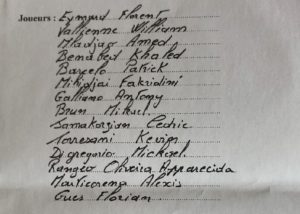 Joueurs : Eymard Florent
Valljenne William
Mladjao Amed
Benabed Khaled
Barcelo Patrick
Mihidjai Fakridini
Galliano Antony
Brun Mickael
Samakorjan Cedric
Torresani Kevin
Digregorio Mickael
Rangeo Oliveira Apparecida
Marticorena Alexis
Gues Florian